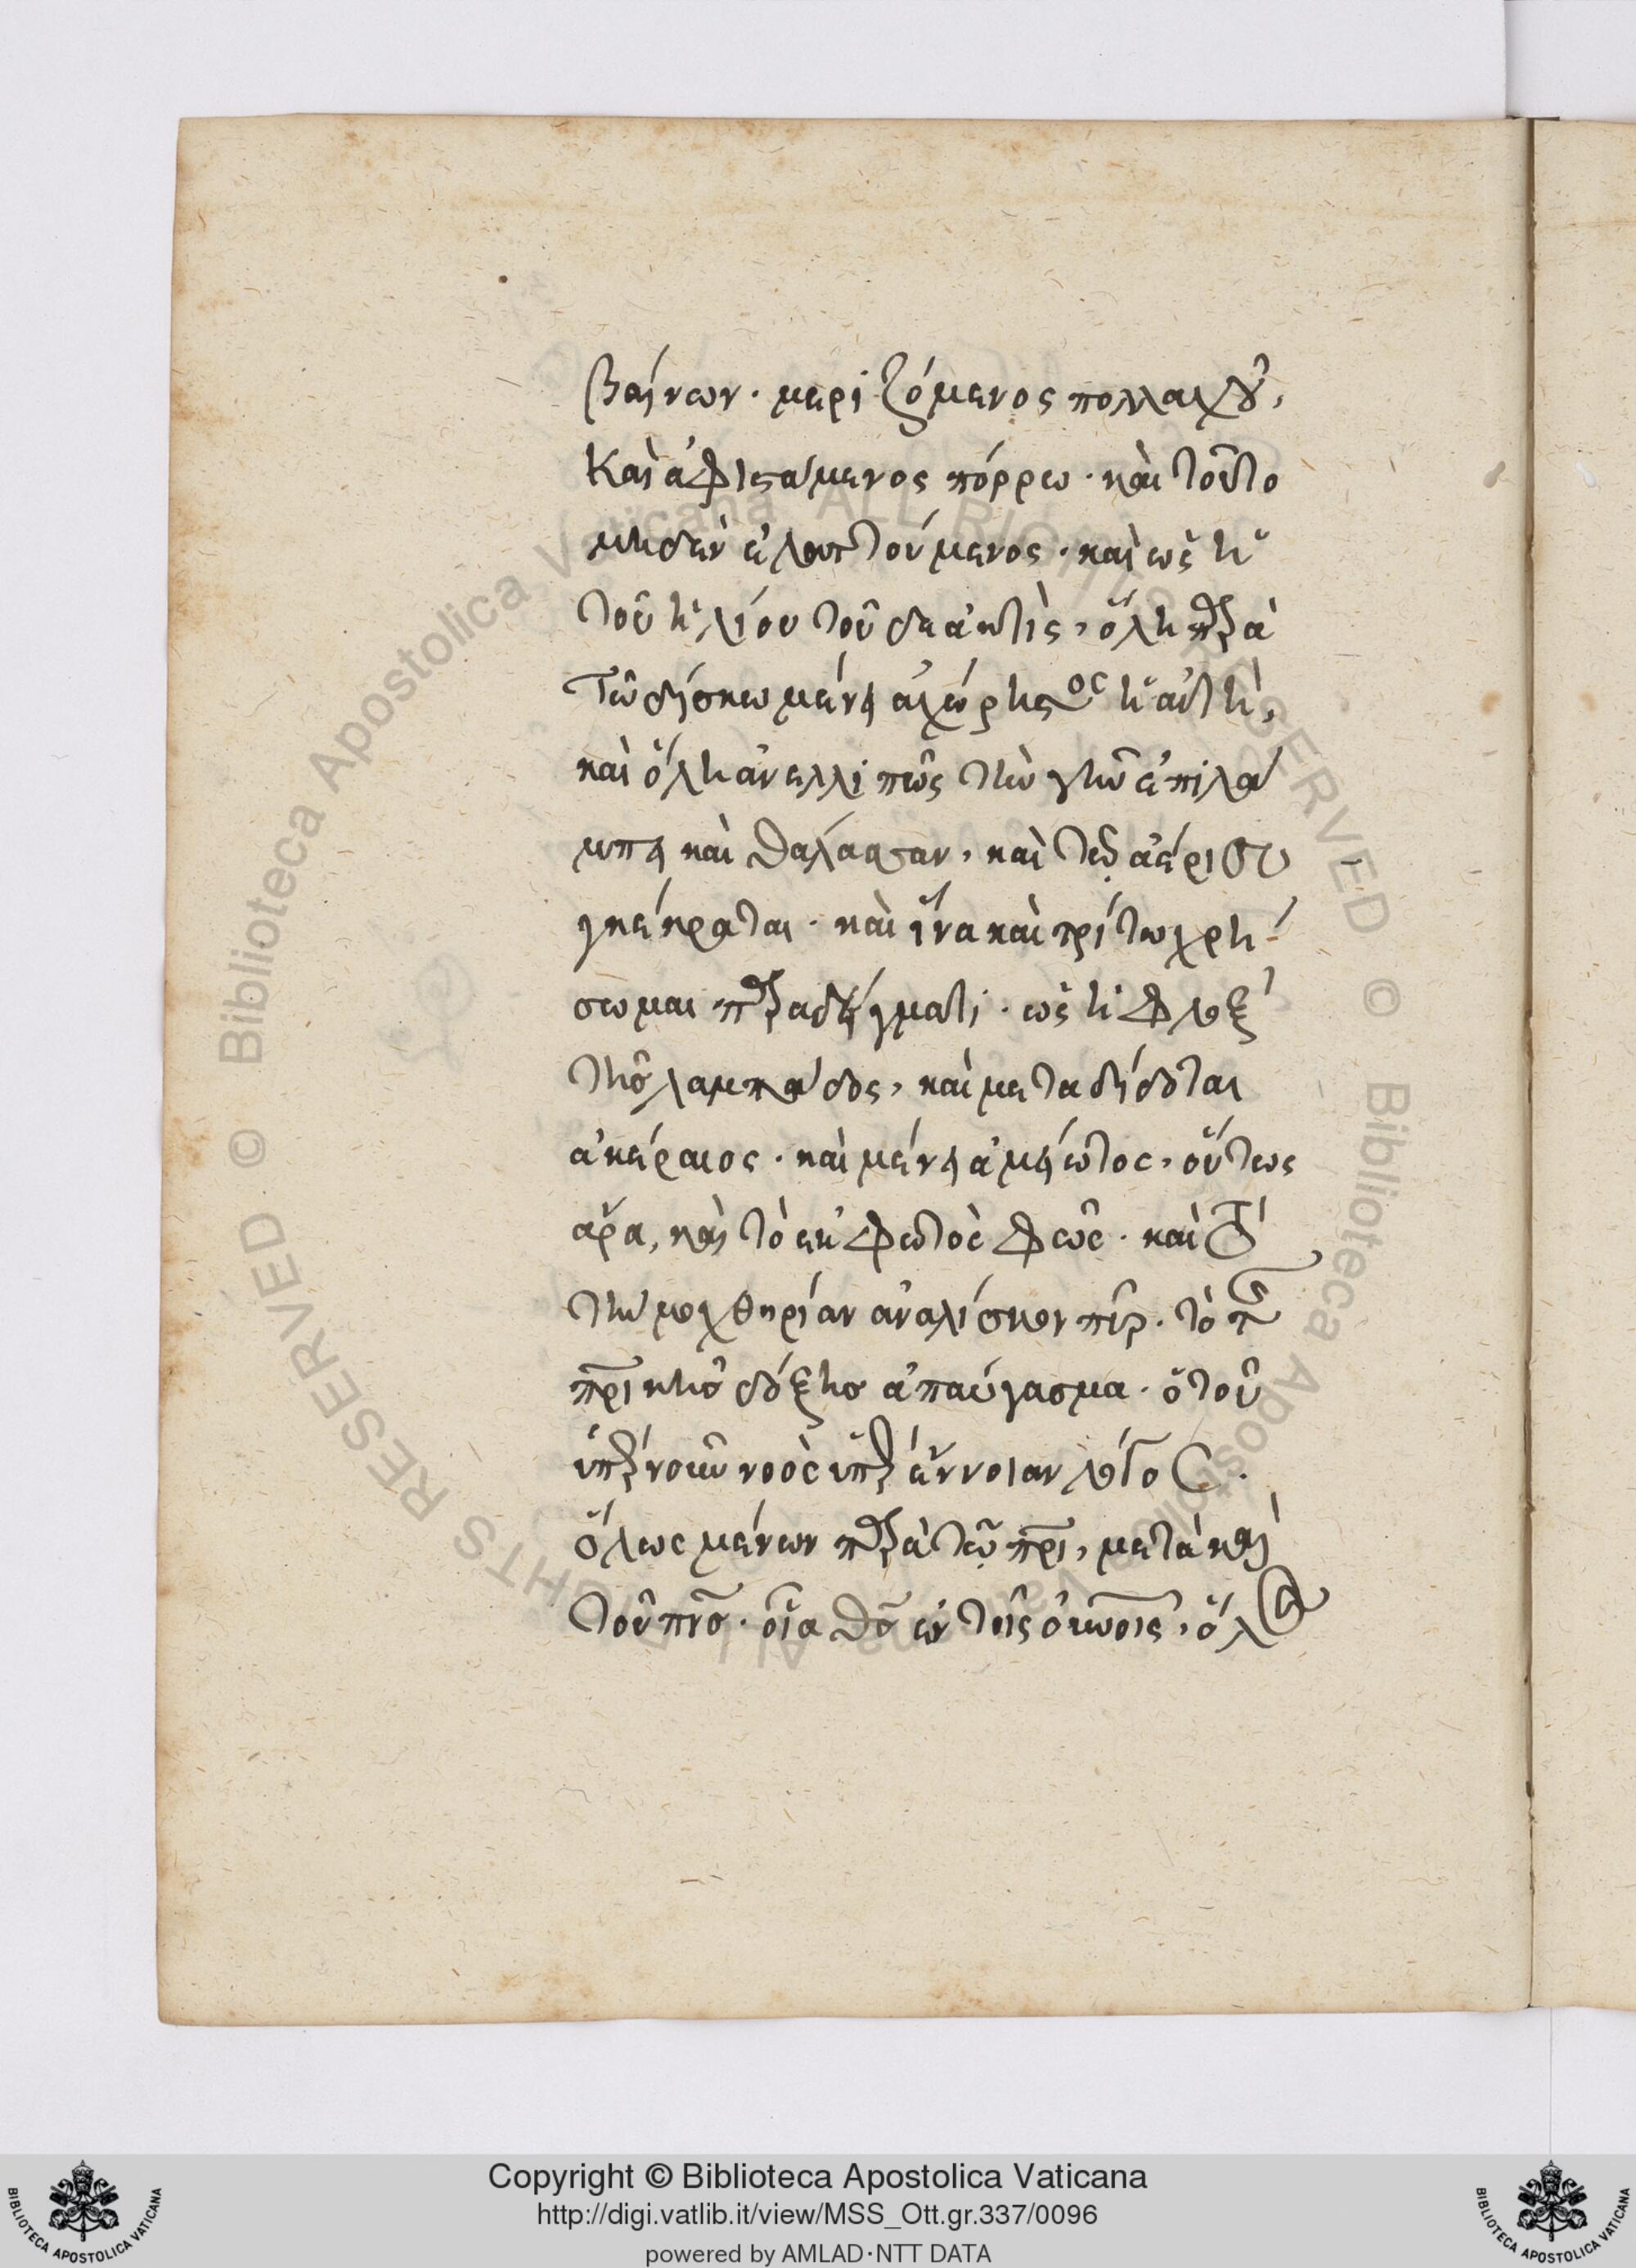 βαίνων· μεριζόμενος πολλαχοῦ,
Καὶ ἀφιστάμενος πόρρω· καὶ τοῦτο
μηδὲν ἐλαττούμενος· καὶ ὡς ἡ
τοῦ ἡλίου τοῦδε ἀκτὶς, ὅλη παρὰ
τῷ δίσκω μένει ἀχώριστος ἡ αὐτὴ,
καὶ ὅλη ἀνελλιπῶς τὴν γῆν ἐπιλά
μπει καὶ θάλασσαν, καὶ τῷ ἀέρι συ
γκέκραται· καὶ ἵνα καὶ τρίτω χρή
σωμαι παραδείγματι· ὡς ἡ φλὸξ
τῆς λαμπάδος, καὶ μεταδίδοται
ἀκέραιος· καὶ μένει ἀμείωτος, οὕτως
ἄρα, καὶ τὸ ἐκ φωτὸς φῶς· καὶ
τὴν μοχθηρίαν ἀναλίσκον πῦρ. τὸ τῆς
πρικῆς δόξης ἀπαύγασμα. ὁ τοῦ
ὑπὲρ νοῦν νοὸς ὑπὲρ ἔννοιαν λόγος.
ὅλως μένων παρὰ τῷ πρι, μετὰ καὶ
τοῦ πνς. οἷα θς ἐν τοῖς οἰκείοις, ὅλως
Copyright © Biblioteca Apostolica Vaticana
http://digi.vatlib.it/view/MSS_Ott.gr.337/0096
powered by AMLAD·NTT DATA
BIBLIOTECA APOSTOLICA VATICANA
BIBLIOTECA APOSTOLICA VATICANA
© Biblioteca Apostolica Vaticana ALL RIGHTS RESERVED
© Biblioteca Apostolica Vaticana ALL RIGHTS RESERVED